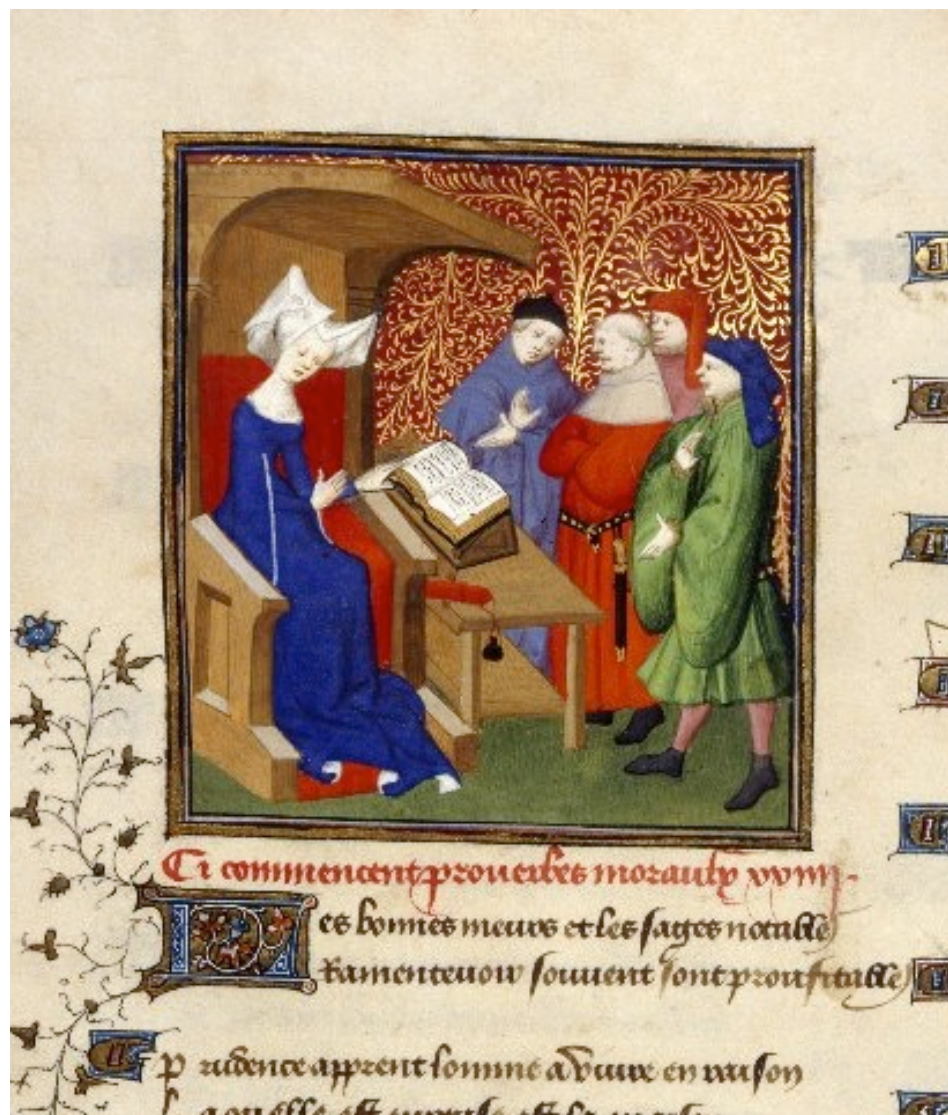 Ci commencent prouerbes moraulx xxiiij.
Des bonnes meurs et les sages notables
Ramenteuoir souuent sont prouffitables
Prudence apprent lomme a viure en raison